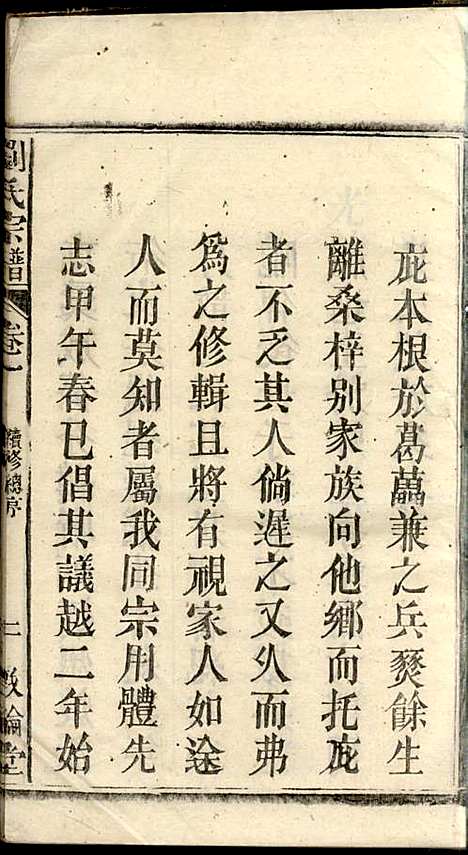 庇本根於葛藟兼之兵燹餘生
離桑梓别家族向他鄉而托庇
者不乏其人倘遲之又久而弗
為之修輯且將有視家人如途
人而莫知者屬我同宗用體先
志甲午春已倡其議越二年始
劉氏宗譜 卷一 續修總序 二 敦倫堂